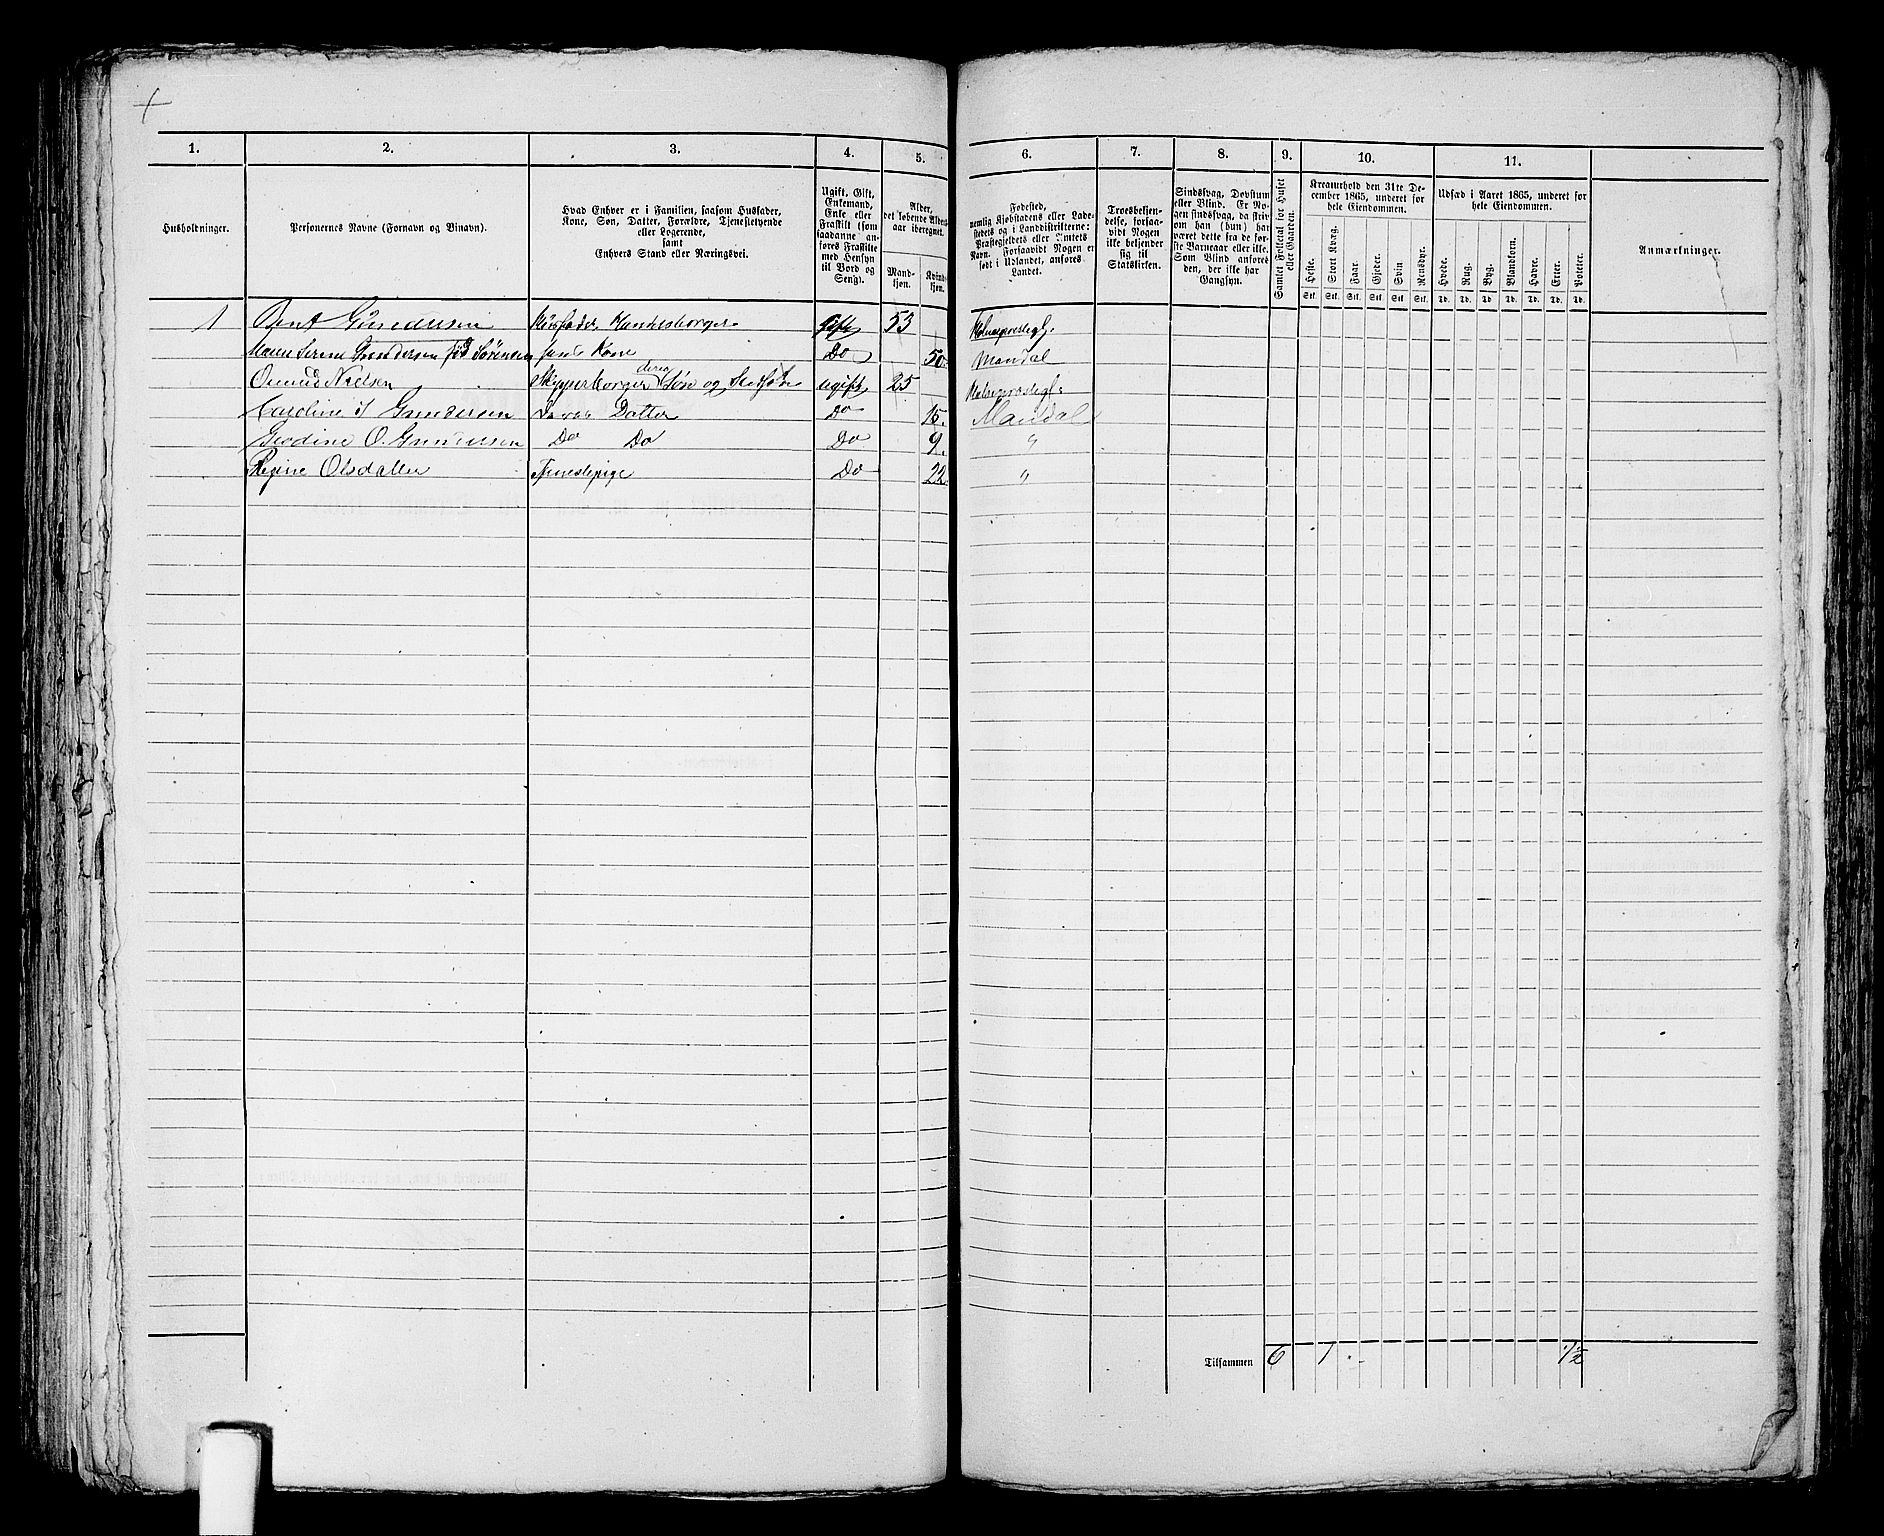 1. 2. 3. 4. 5. 6. 7. 8. 9. 10. 11.
Husholdninger.
Personernes Navne (Fornavn og Binavn).
Hvad Enhver er i Familien, saasom Husfader,
Kone, Søn, Datter, Forældre, Tjenestetyende
eller Logerende,
samt
Enhvers Stand eller Næringsvei.
Ugift, Gift,
Enkemand,
Enke eller
Fraskilt (som
saadanne an-
føres Fraskilte
med Hensyn
til Bord og
Seng).
Alder,
det løbende Alders-
aar iberegnet.
Mand-
kjøn.
Kvind-
kjøn.
Fødested,
nemlig Kjøbstadens eller Lade-
stedets og i Landdistrikterne:
Præstegjeldets eller Amtets
Navn. Forsaavidt Nogen er
født i Udlandet, anføres
Landet.
Troesbekjen-
delse, forsaa-
vidt Nogen
ikke bekjender
sig til
Statskirken.
Sindssvag, Døvstum
eller Blind. Er No-
gen sindssvag, da skriv
om han (hun) har
været dette fra de før-
ste Barneaar eller ikke.
Som Blind anføres
den, der ikke har
Gangsyn.
Samlet Folketal for Huset
eller Gaarden.
Kreaturhold den 31te De-
cember 1865, underet for
hele Eiendommen.
Heste. Stort Kvæg. Faar. Gjeder. Svin Rensdyr.
Stk. Stk. Stk. Stk. Stk. Stk.
Udsæd i Aaret 1865, underet for
hele Eiendommen.
Hvede. Rug. Byg. Blandkorn. Havre. Erter. Poteter.
Td. Td. Td. Td. Td. Td. Td.
Anmærkninger.
1 Bent Gundersen Husfader Gift 53
Gundersen född Sørensen hans Kone Do 50. Mandal
Nielsen Søn og ugift 25
Caroline Gundersen Datter Do 15. Mandal
O. Gundersen Do Do Do 9. "
Regine Olsdatter Tjenestepige Do 22 "
Tilsammen 6 1 1/2